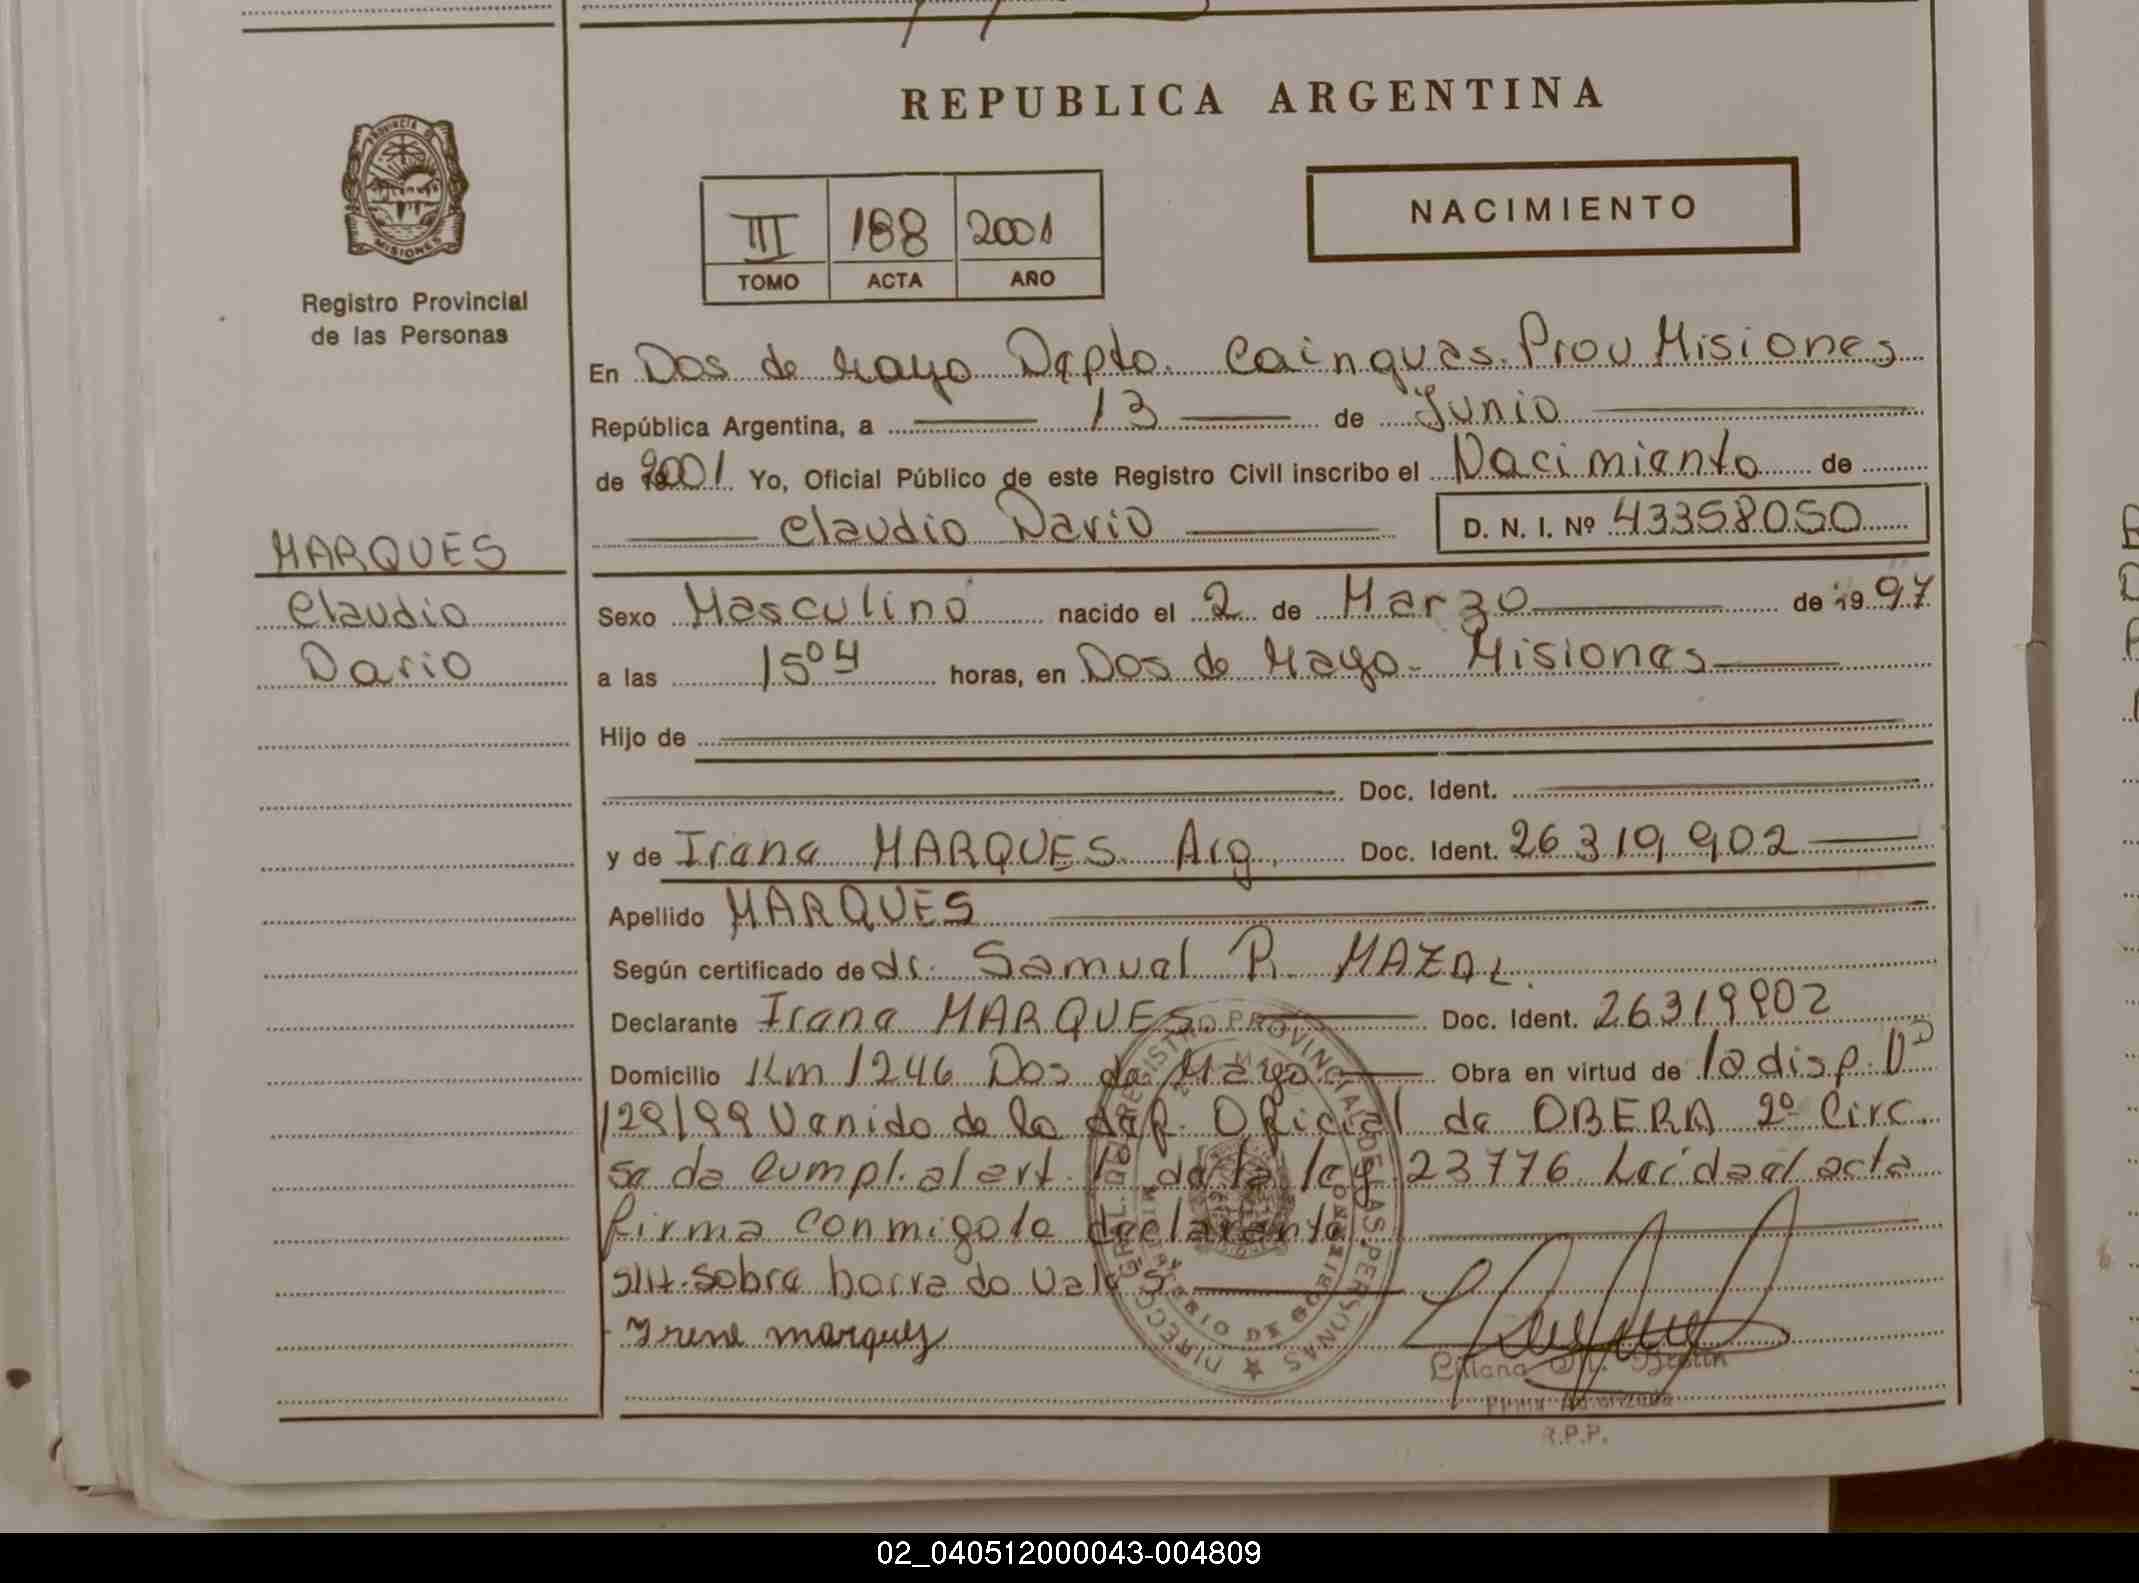 REPUBLICA ARGENTINA
PROVINCIA DE MISIONES
Registro Provincial
de las Personas
III 188 2001
TOMO ACTA AÑO
NACIMIENTO
En Dos de Mayo Depto. Cainguas Prov Misiones
República Argentina, a 13 de Junio
de 2001 Yo, Oficial Público de este Registro Civil inscribo el Nacimiento de
Claudio Dario D. N. I. Nº 43358050
MARQUES
Claudio
Dario
Sexo Masculino nacido el 2 de Marzo de 1997
a las 15 04 horas, en Dos de Mayo - Misiones
Hijo de
Doc. Ident.
y de Irene MARQUES Arg. Doc. Ident. 26319902
Apellido MARQUES
Según certificado de dr. Samuel R. MAZAL
Declarante Irene MARQUES Doc. Ident. 26319902
Domicilio Km 1246 Dos de Mayo Obra en virtud de la disp. Nº
129/99 Venido de la Of. Oficial de OBERA 2º Circ.
se da cumpl. al art. 1 de la ley 23776 Leida el acta
firma conmigo la declarante
sobre borrado Vale
Irene marques
DIRECC. GRAL. DEL REGISTRO PROVINCIAL DE LAS PERSONAS
MINISTERIO DE GOBIERNO
Liliana
R.P.P.
02_040512000043-004809